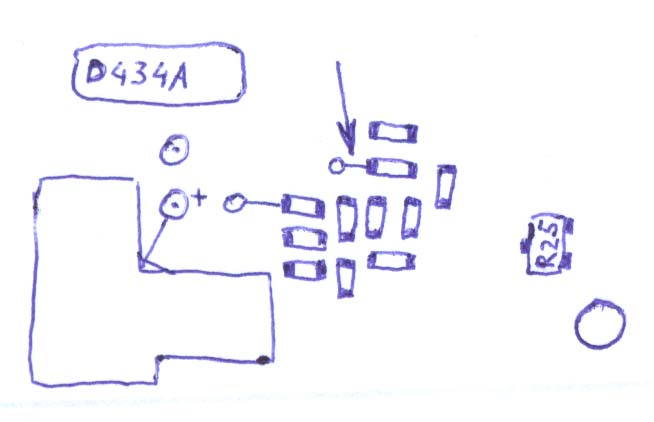 D434A
+
R25